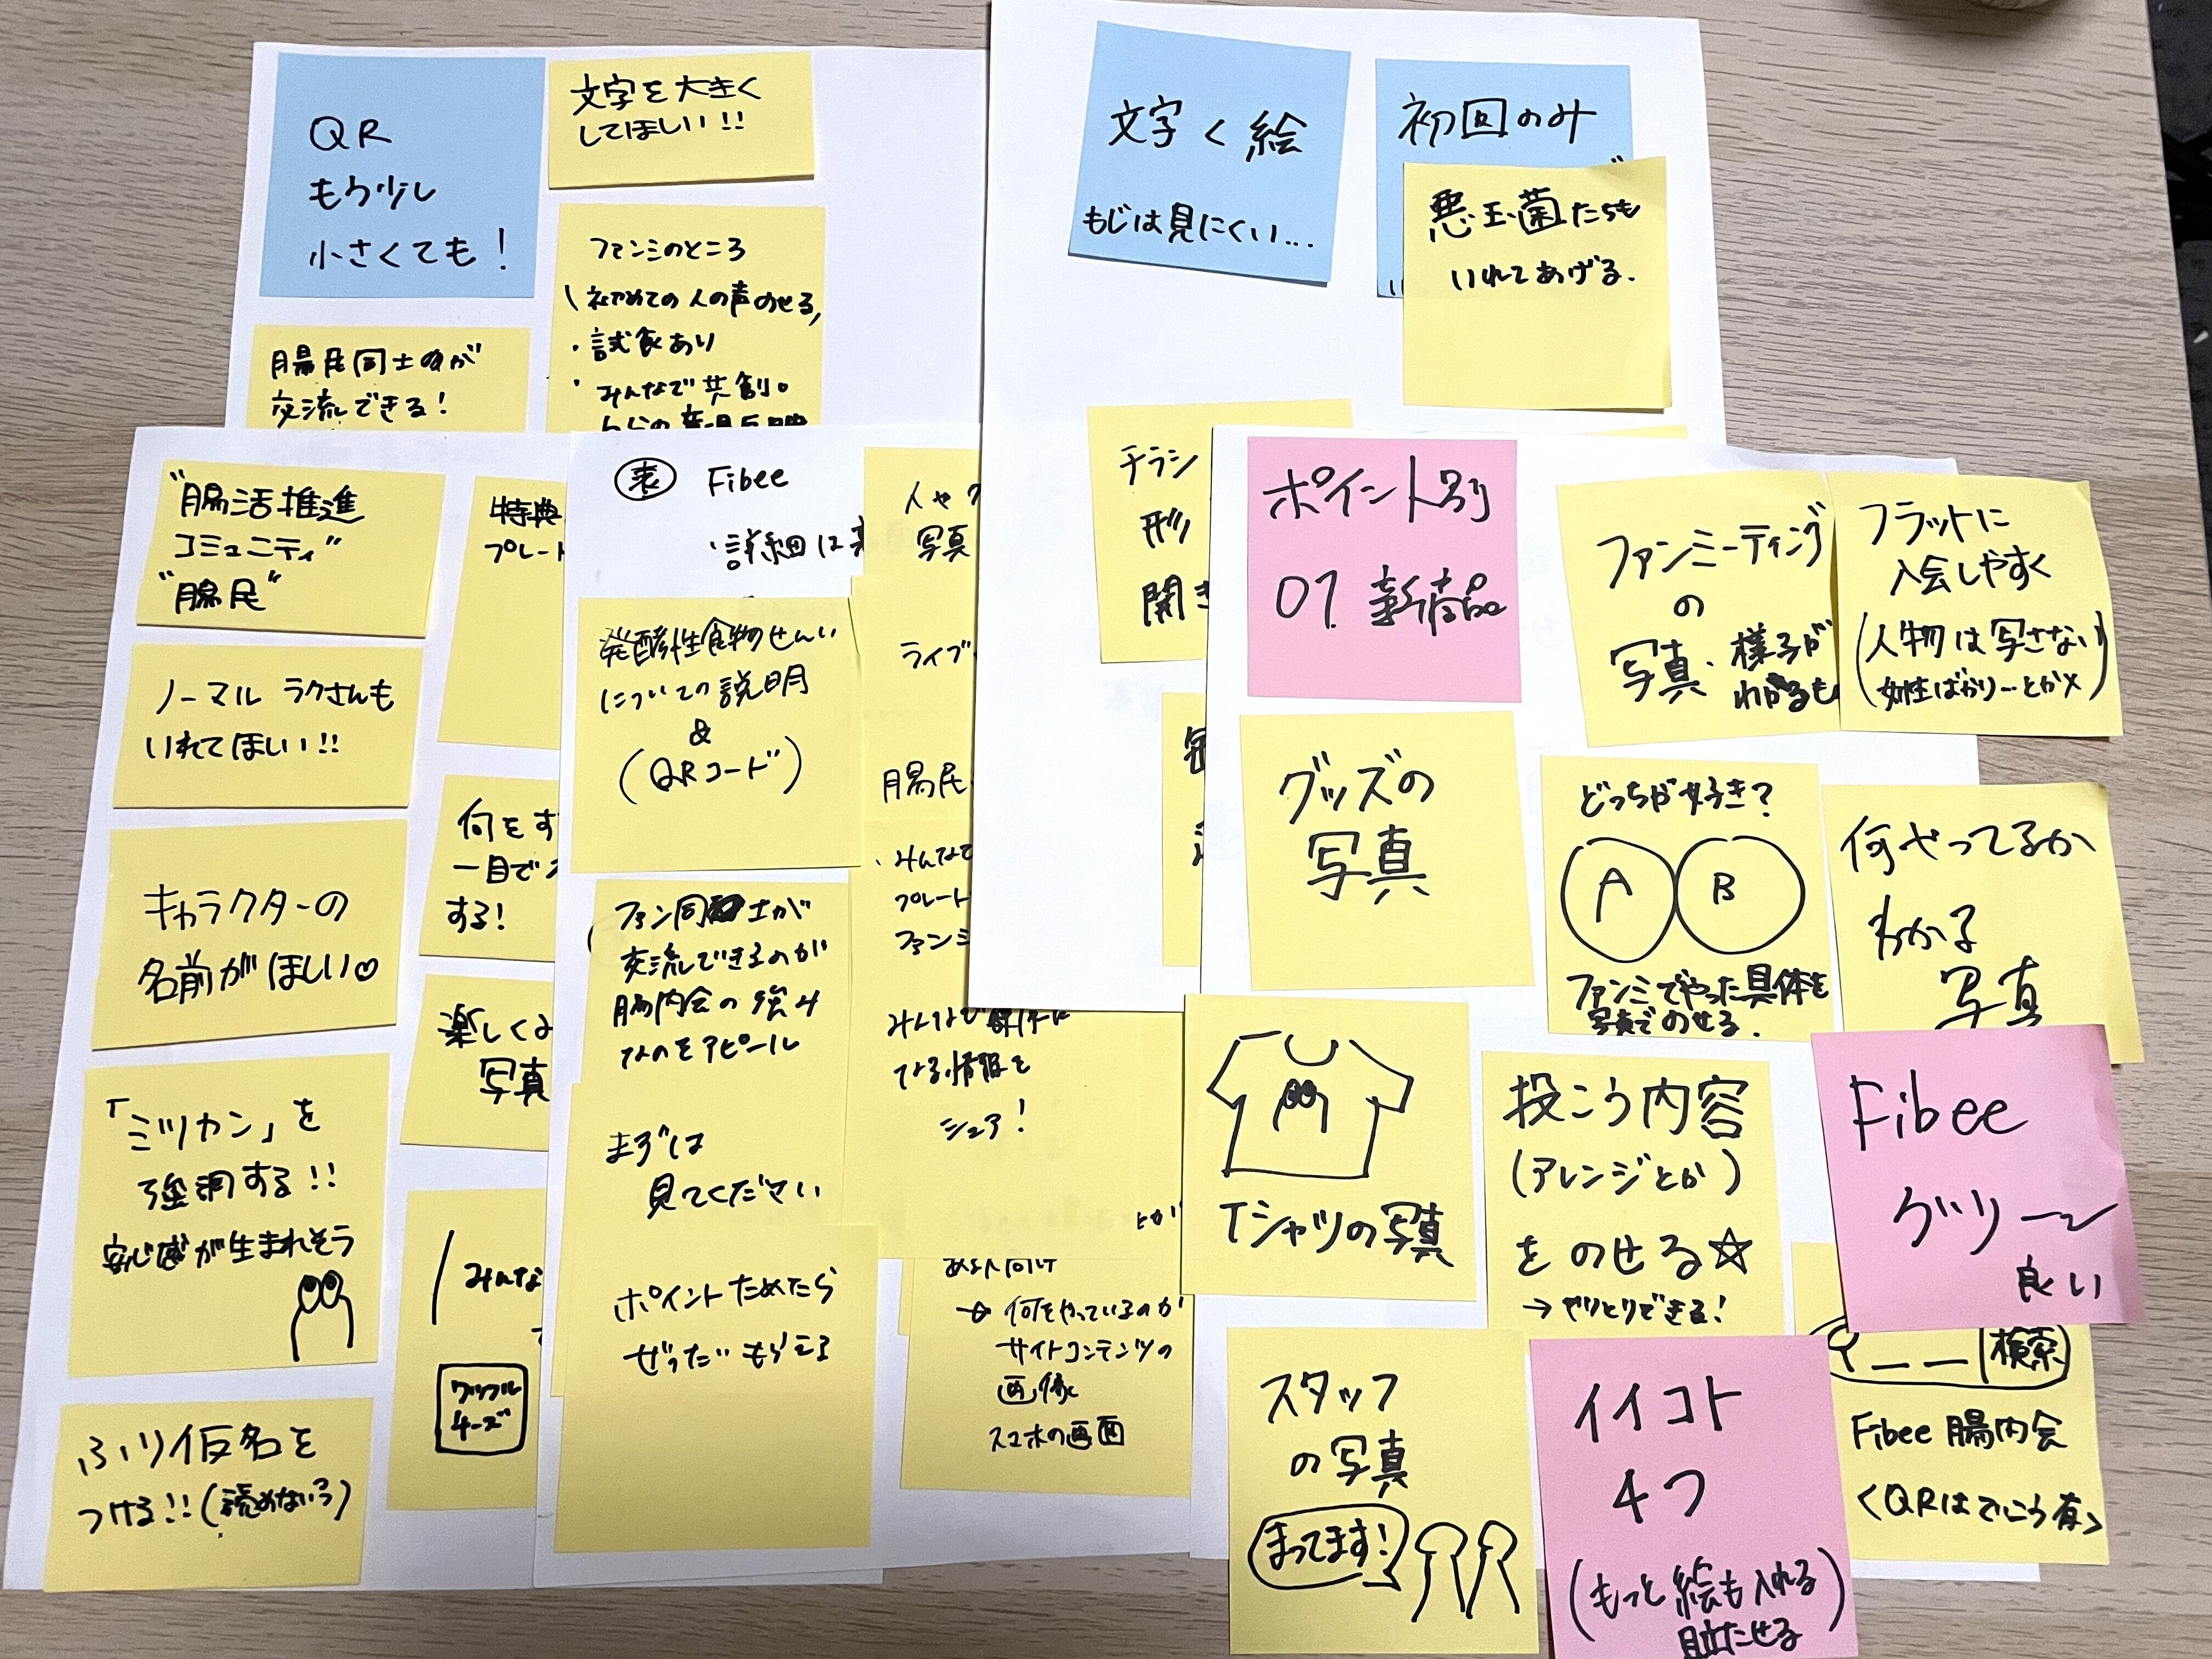 QR
もう少し
小さくても！
文字を大きく
してほしい!!
ファンミのところ
初めての人の声のせる,
・試食あり
・みんなで共創。
腸民同士が
交流できる！
文字く絵
もじは見にくい…
初回のみ
悪玉菌たちも
いれてあげる.
"腸活推進
コミュニティ"
"腸民"
ノーマル ラクさんも
いれてほしい!!
キャラクターの
名前がほしい♡
「ミツカン」を
強調する!!
安心感が生まれそう
ふり仮名を
つける!!(読めない？)
特典
プレート
何をす
一目で
する！
楽しくみ
写真
みんな
ワッフル
チーズ
表 Fibee
・詳細は
発酵性食物せんい
についての説明
&
(QRコード)
ファン同士が
交流できるのが
腸内会の強み
なのをアピール
まずは
見てください
ポイントためたら
ぜったいもらえる
人や
写真
ライブ
腸民
・みんなで
プレート
ファンミ
みんなで
なる情報を
シェア！
→ 何をやっているのか
サイトコンテンツの
画像
スマホの画面
チラシ
形
開き
ポイント別
01. 新商品
グッズの
写真
Tシャツの写真
スタッフ
の写真
まってます！
ファンミーティング
の
写真・様子が
わかるも
フラットに
入会しやすく
(人物は写さない
女性ばかり…とか×)
どっちが好き？
A B
ファンミでやった具体を
写真でのせる.
何やってるか
わかる
写真
投こう内容
(アレンジとか)
をのせる☆
→ やりとりできる！
Fibee
グリ〜
良い
イイコト
4つ
(もっと絵も入れる
目立たせる)
検索
Fibee 腸内会